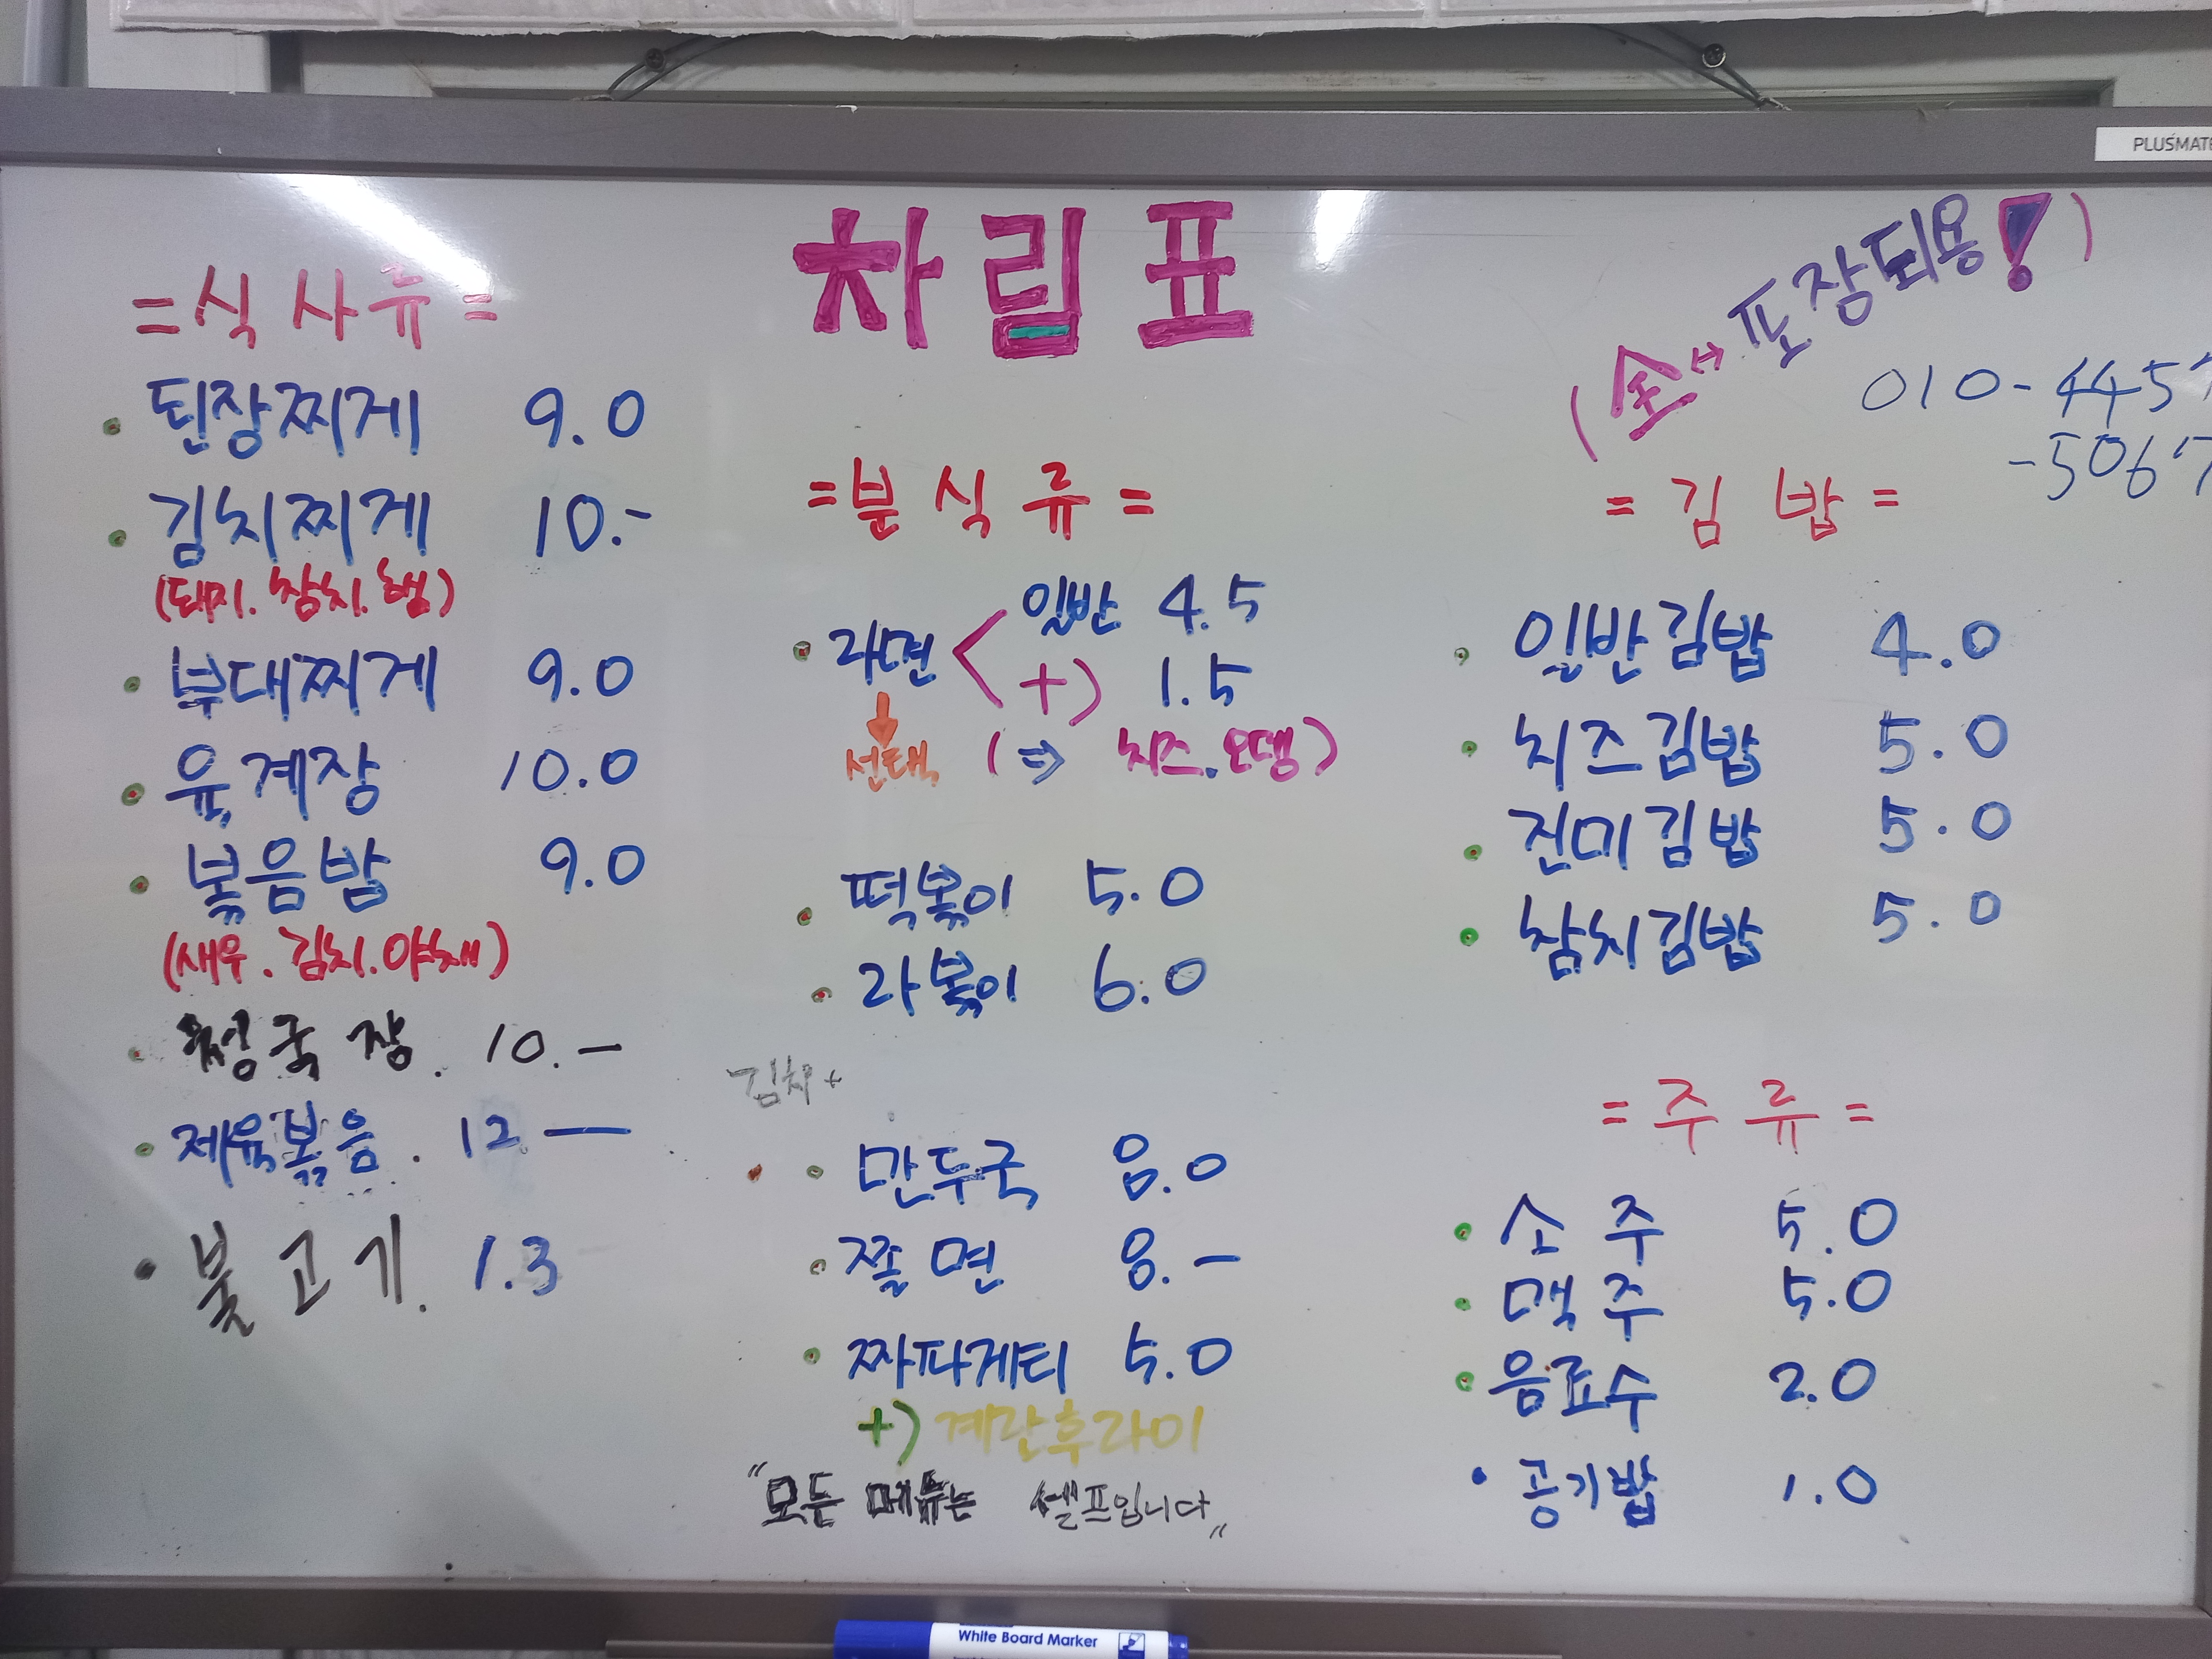 PLUSMATE
차림표
(全↔포장되용!)
010-4457
-5067
=식사류=
· 된장찌게 9.0
· 김치찌게 10.-
(돼지.참치.햄)
· 부대찌게 9.0
· 육계장 10.0
· 볶음밥 9.0
(새우.김치.야채)
· 청국장. 10.—
· 제육볶음. 12—
· 불고기. 1.3
=분식류=
· 라면 < 일반 4.5
+) 1.5
↓
선택 (⇒ 치즈.오뎅)
· 떡볶이 5.0
· 라볶이 6.0
김치+
· 만두국 8.0
· 쫄면 8.—
· 짜파게티 5.0
+) 계란후라이
"모든 메뉴는 셀프입니다"
=김밥=
· 일반김밥 4.0
· 치즈김밥 5.0
· 진미김밥 5.0
· 참치김밥 5.0
=주류=
· 소주 5.0
· 맥주 5.0
· 음료수 2.0
· 공기밥 1.0
White Board Marker